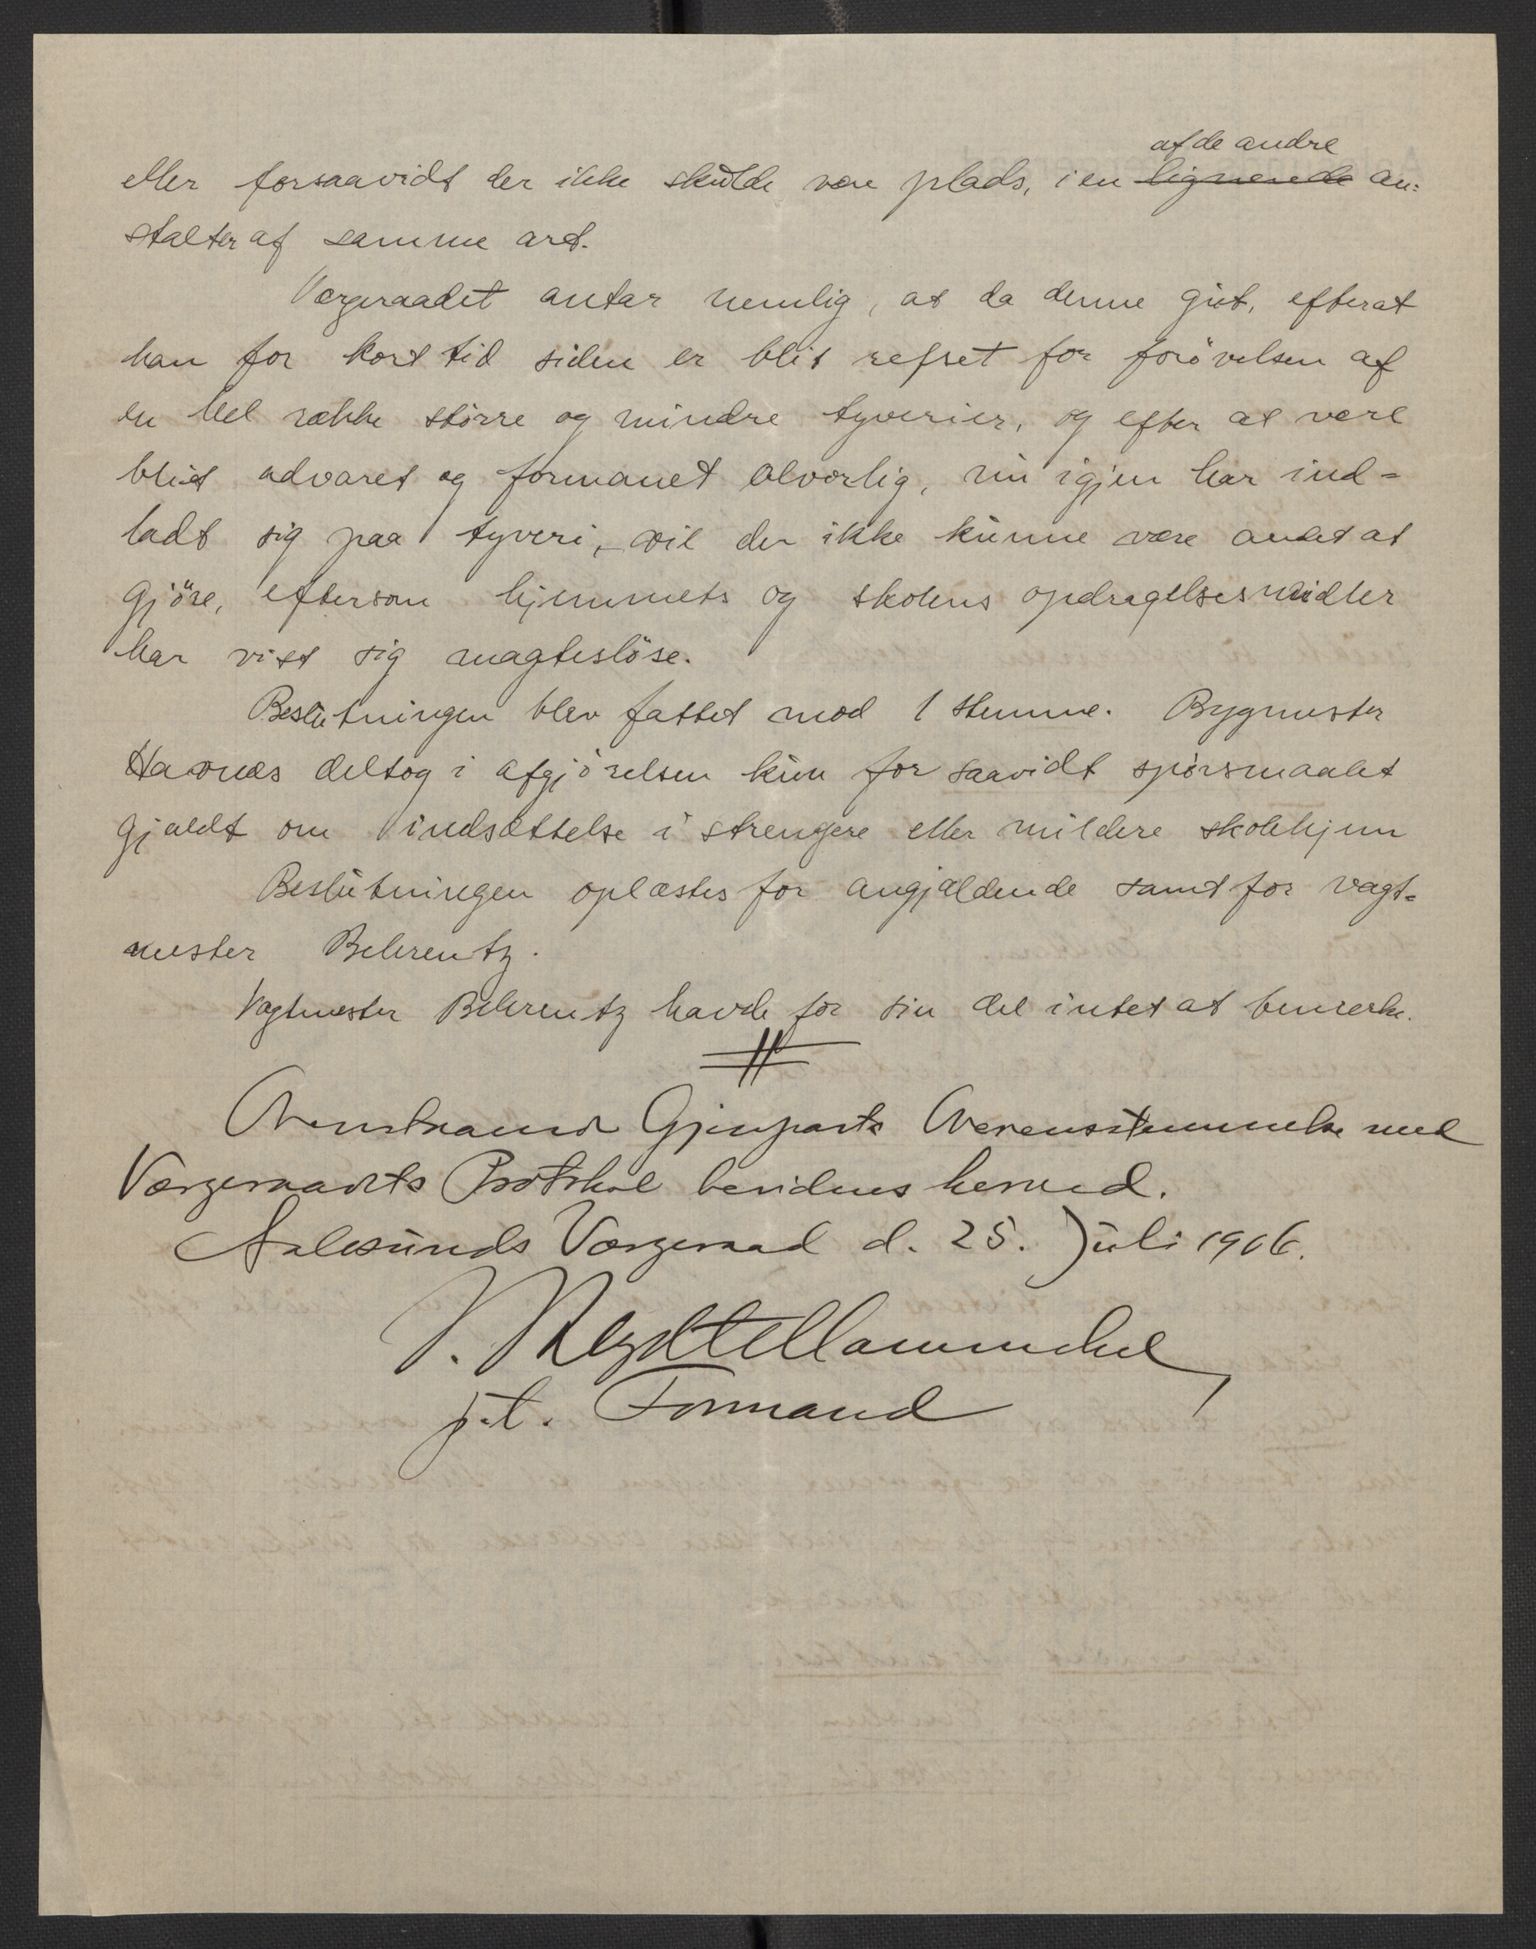 af de andre
eller forsaavidt der ikke skulde være plads, i en lignende an=
stalter af samme art.
Værgeraadet antar nemlig, at da denne gut, efterat
han for kort tid siden er blit refset for forøvelsen af
en hel række större og mindre tyverier, og efter at være
blit advaret og formanet alvorlig, nu igjen har ind=
ladt sig paa tyveri, vil der ikke kunne være andet at
gjöre, eftersom hjemmets og skolens opdragelsesmidler
har vist sig magteslöse.
Beslutningen blev fattet mod 1 stemme. Bygmester
Havnes deltog i afgjörelsen kun for saavidt spörsmaalet
gjaldt om indsættelse i strengere eller mildere skolehjem
Beslutningen oplæstes for angjældende samt for vagt=
mester Behrentz.
Vagtmester Behrentz havde for sin del intet at bemerke.
Ovenstaaende Gjenparts Overensstemmelse med
Værgeraadets Protokol bevidnes herved.
Aalesunds Værgeraad d. 25. Juli 1906.
p.t. Formand